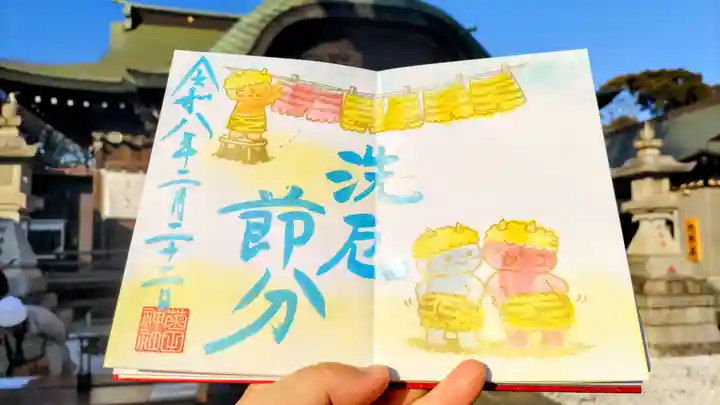 洗厄
節分
令和八年二月二十二日
菊田
神社